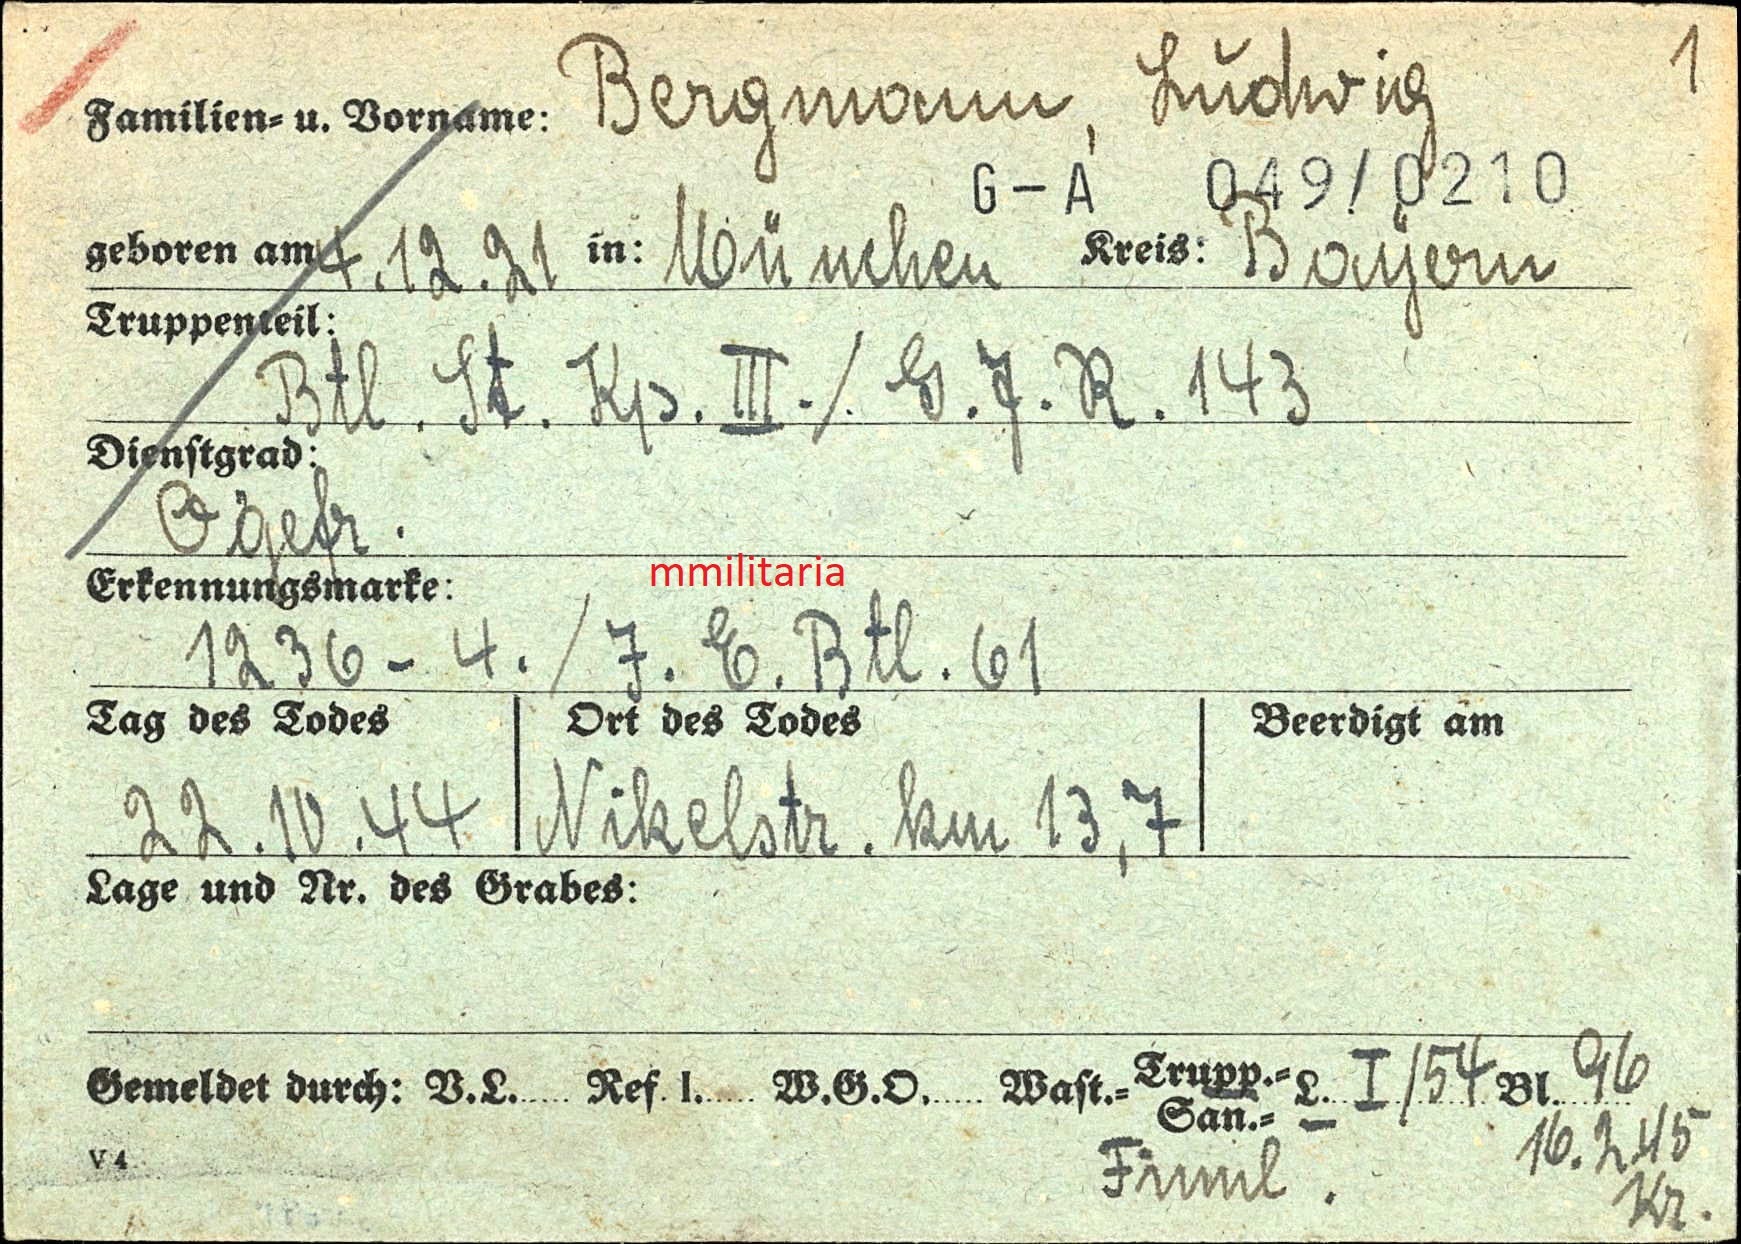 1
Familien- u. Vorname: Bergmann, Ludwig
G-A 049/0210
geboren am 4.12.21 in: München Kreis: Bayern
Truppenteil:
Btl. St. Kp. III./. G.J.R. 143
Dienstgrad:
Ogefr.
Erkennungsmarke:
mmilitaria
1236 - 4./J.E.Btl. 61
Tag des Todes Ort des Todes Beerdigt am
22.10.44 Nikelstr. km 13,7
Lage und Nr. des Grabes:
Gemeldet durch: V.L..... Ref. I..... W.G.O..... Wast.= Trupp.= L. I/54 Bl. 96
San.= –
16.2.45
V 4
Kr.